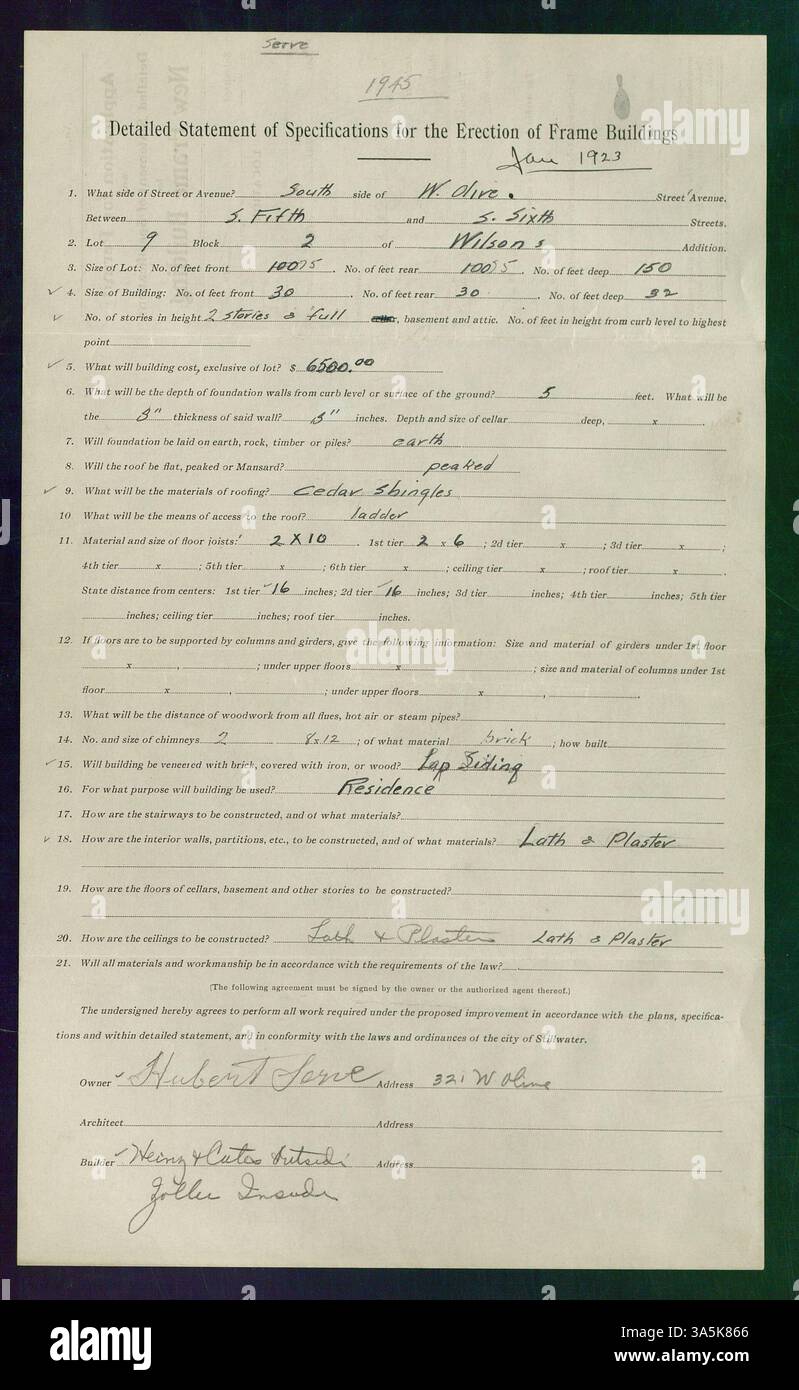 Serve
1945
Detailed Statement of Specifications for the Erection of Frame Buildings
Jan 1923
1. What side of Street or Avenue? South side of W. Olive. Street Avenue.
Between S. Fifth and S. Sixth Streets.
2. Lot 9 Block 2 of Wilsons Addition.
3. Size of Lot: No. of feet front 75, No. of feet rear 75, No. of feet deep 150
4. Size of Building: No. of feet front 30, No. of feet rear 30, No. of feet deep 32
No. of stories in height 2 stories & full, basement and attic. No. of feet in height from curb level to highest
point
5. What will building cost, exclusive of lot? $ 6500.00
6. What will be the depth of foundation walls from curb level or surface of the ground? 5 feet. What will be
the 8" thickness of said wall? 8" inches. Depth and size of cellar deep, x .
7. Will foundation be laid on earth, rock, timber or piles? earth
8. Will the roof be flat, peaked or Mansard? peaked
9. What will be the materials of roofing? Cedar Shingles
10 What will be the means of access to the roof? ladder
11. Material and size of floor joists: 2 X 10 . 1st tier 2 x 6 ; 2d tier x ; 3d tier x ;
4th tier x ; 5th tier x ; 6th tier x ; ceiling tier x ; roof tier x .
State distance from centers: 1st tier 16 inches; 2d tier 16 inches; 3d tier inches; 4th tier inches; 5th tier
inches; ceiling tier inches; roof tier inches.
12. If floors are to be supported by columns and girders, give the following information: Size and material of girders under 1st floor
x , ; under upper floors x ; size and material of columns under 1st
floor x , ; under upper floors x , .
13. What will be the distance of woodwork from all flues, hot air or steam pipes?
14. No. and size of chimneys 2 8x12 ; of what material brick ; how built
15. Will building be veneered with brick, covered with iron, or wood? Lap Siding
16. For what purpose will building be used? Residence
17. How are the stairways to be constructed, and of what materials?
18. How are the interior walls, partitions, etc., to be constructed, and of what materials? Lath & Plaster
19. How are the floors of cellars, basement and other stories to be constructed?
20. How are the ceilings to be constructed? Lath & Plaster Lath & Plaster
21. Will all materials and workmanship be in accordance with the requirements of the law?
(The following agreement must be signed by the owner or the authorized agent thereof.)
The undersigned hereby agrees to perform all work required under the proposed improvement in accordance with the plans, specifica-
tions and within detailed statement, and in conformity with the laws and ordinances of the city of Stillwater.
Owner Hubert Serve Address 321 W Olive
Architect Address
Builder Heinz & Cates Outside Address
Zoller Inside
alamy
Image ID: 3A5K866
www.alamy.com